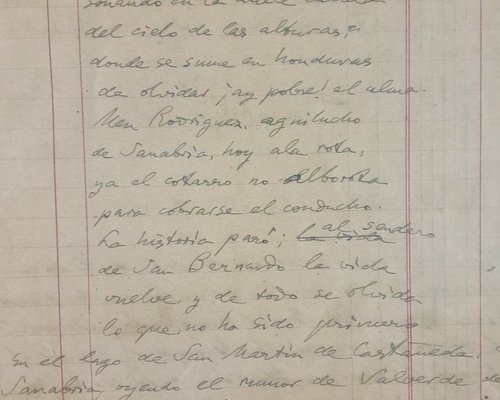 sonando en la
del cielo de las alturas,
donde se sume en honduras
de olvidar ¡ay pobre! el alma.
Men Rodríguez, aguilucho
de Sanabria, hoy ala rota,
ya el cotarro no alborota
para cobrarse el conducho.
La historia paró; la vida al sendero
de San Bernardo la vida
vuelve, y de todo se olvida
lo que no ha sido primero.
En el lago de San Martín de Castañeda.
Sanabria, oyendo el rumor de Valverde de